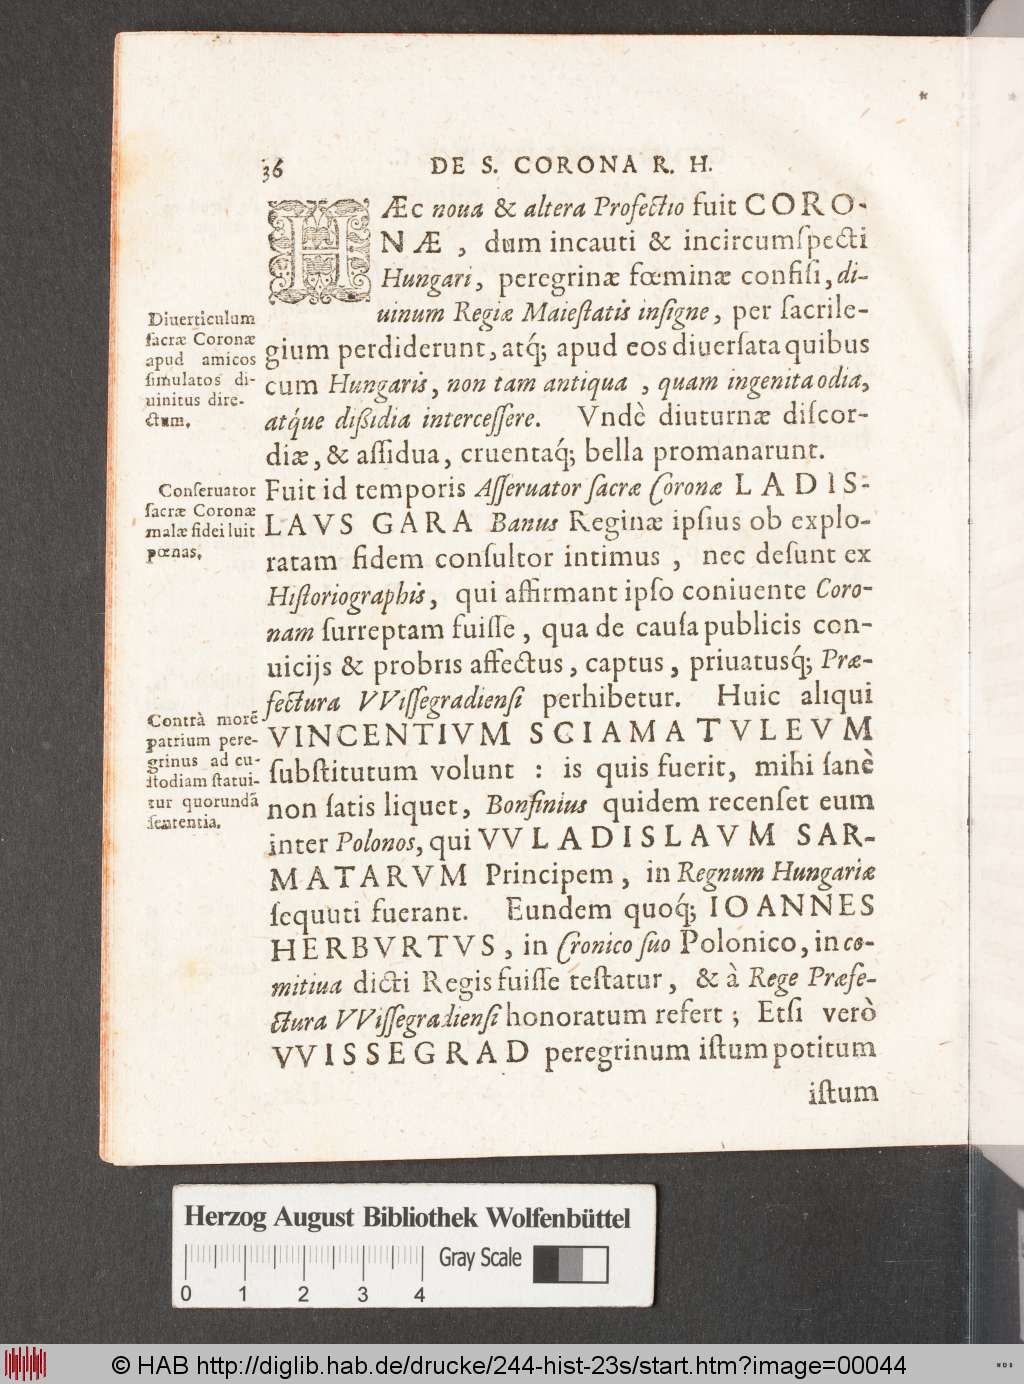 36
DE S. CORONA R. H.
HÆc noua & altera Profectio fuit CORO-
NÆ, dum incauti & incircumſpecti
Hungari, peregrinæ fœminæ confiſi, di-
uinum Regiæ Maieſtatis inſigne, per ſacrile-
gium perdiderunt, atq́; apud eos diuerſata quibus
cum Hungaris, non tam antiqua, quam ingenita odia,
atq́ue dißidia interceſſere. Vndè diuturnæ diſcor-
diæ, & aſſidua, cruentaq́; bella promanarunt.
Fuit id temporis Aſſeruator ſacræ Coronæ LADIS-
LAVS GARA Banus Reginæ ipſius ob explo-
ratam fidem conſultor intimus, nec deſunt ex
Hiſtoriographis, qui affirmant ipſo coniuente Coro-
nam ſurreptam fuiſſe, qua de cauſa publicis con-
uicijs & probris affectus, captus, priuatusq́; Præ-
fectura VViſſegradienſi perhibetur. Huic aliqui
VINCENTIVM SCIAMATVLEVM
ſubſtitutum volunt : is quis fuerit, mihi ſanè
non ſatis liquet, Bonfinius quidem recenſet eum
inter Polonos, qui VVLADISLAVM SAR-
MATARVM Principem, in Regnum Hungariæ
ſequuti fuerant. Eundem quoq́; IOANNES
HERBVRTVS, in Cronico ſuo Polonico, in co-
mitiua dicti Regis fuiſſe teſtatur, & à Rege Præfe-
ctura VViſſegradienſi honoratum refert ; Etſi verò
VVISSEGRAD peregrinum iſtum potitum
iſtum
Diuerticulum
ſacræ Coronæ
apud amicos
ſimulatos di-
uinitus dire-
ctum.
Conſeruator
ſacræ Coronæ
malæ fidei luit
pœnas.
Contrà morẽ
patrium pere-
grinus ad cu-
ſtodiam ſtatui-
tur quorundã
ſententia.
Herzog August Bibliothek Wolfenbüttel
Gray Scale
0 1 2 3 4
© HAB http://diglib.hab.de/drucke/244-hist-23s/start.htm?image=00044